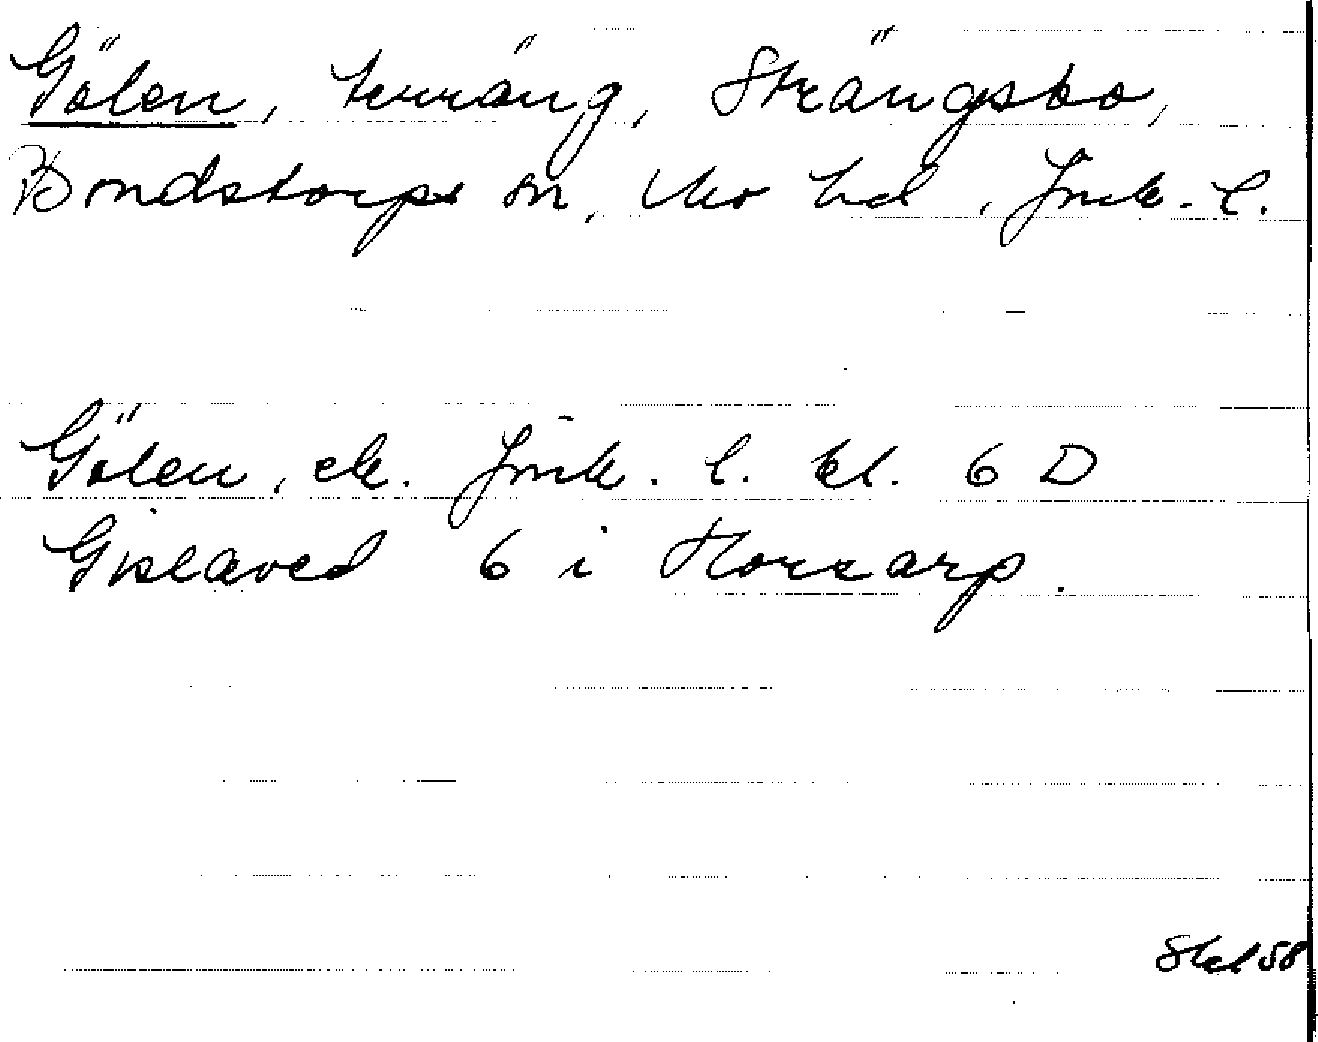 Gölen, terräng, Strängsbo,
Bondstorps sn, Mo hd, Jnk. l.
Gölen, ek. Jnk. l. bl. 6 D
Gislaved 6 i Horsarp.